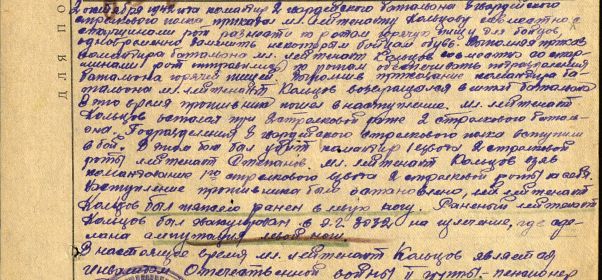 2 октября 1942 года командир 2 гвардейского батальона гвардейского
стрелкового полка приказал мл. лейтенанту Кольцову совместно с
старшинами рот разнести по ротам горячую пищу для бойцов,
одновременно заменить некоторым бойцам обувь. Выполняя приказ
командира батальона мл. лейтенант Кольцов совместно со стар-
шинами рот отправился по ротам обеспечивать подразделения
батальона горячей пищей. Выполнив приказание командира ба-
тальона мл. лейтенант Кольцов возвращался в штаб батальона
В это время противник пошел в наступление. мл. лейтенант
Кольцов остался при стрелковой роте 2 стрелкового батальо-
она. Подразделения гвардейского стрелкового полка вступили
в бой. В этом бою был убит командир 1 взвода 2 стрелковой
роты лейтенант Степанов. мл. лейтенант Кольцов взяв
командование 1го стрелкового взвода 2 стрелковой роты на себя.
Наступление противника было остановлено, мл. лейтенант
Кольцов был тяжело ранен в левую ногу. Раненый лейтенант
Кольцов был эвакуирован в Э.Г. 3032 на излечение, где сде-
лана ампутация левой ноги.
В настоящее время мл. лейтенант Кольцов является
инвалидом Отечественной войны II группы, пенсионер
ДЛЯ ПО